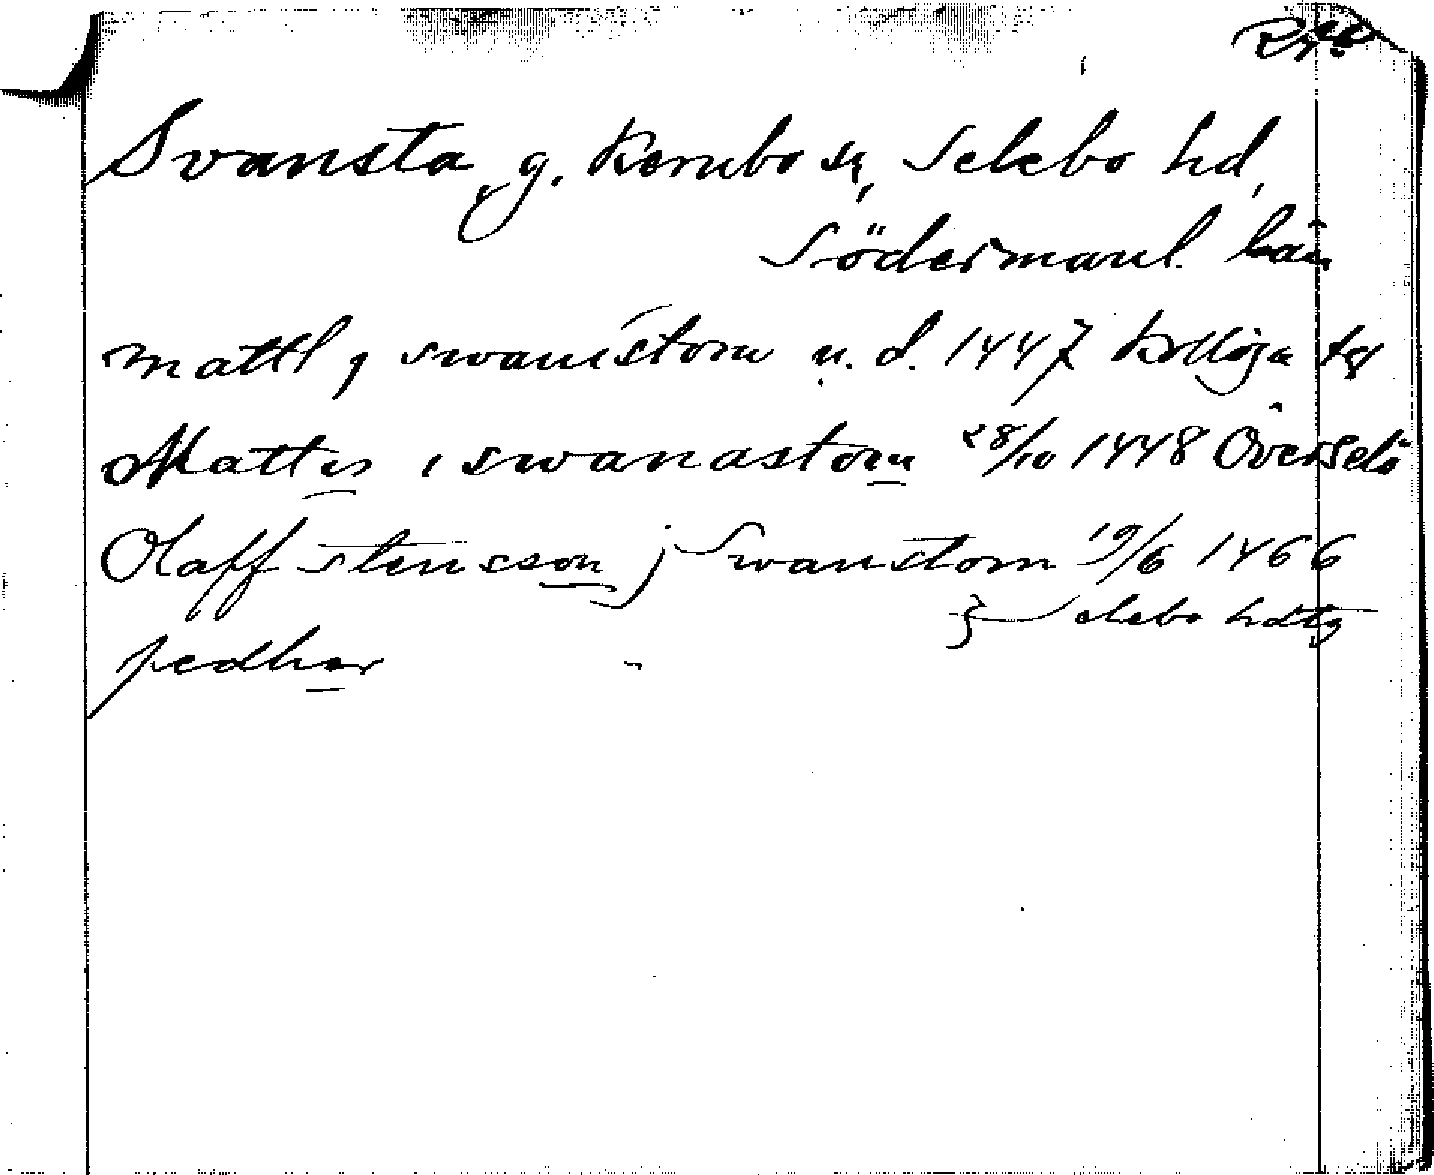 Svansta, g. Kernbo sn, Selebo hd,
Södermanl. län
mattl j swanastom u. d. 1447 Kolløja tg
Mattis i swanastom 28/10 1448 Överselö
Olaff stensson j Swanstom 19/6 1466
} Selebo hdtg
pedhar "